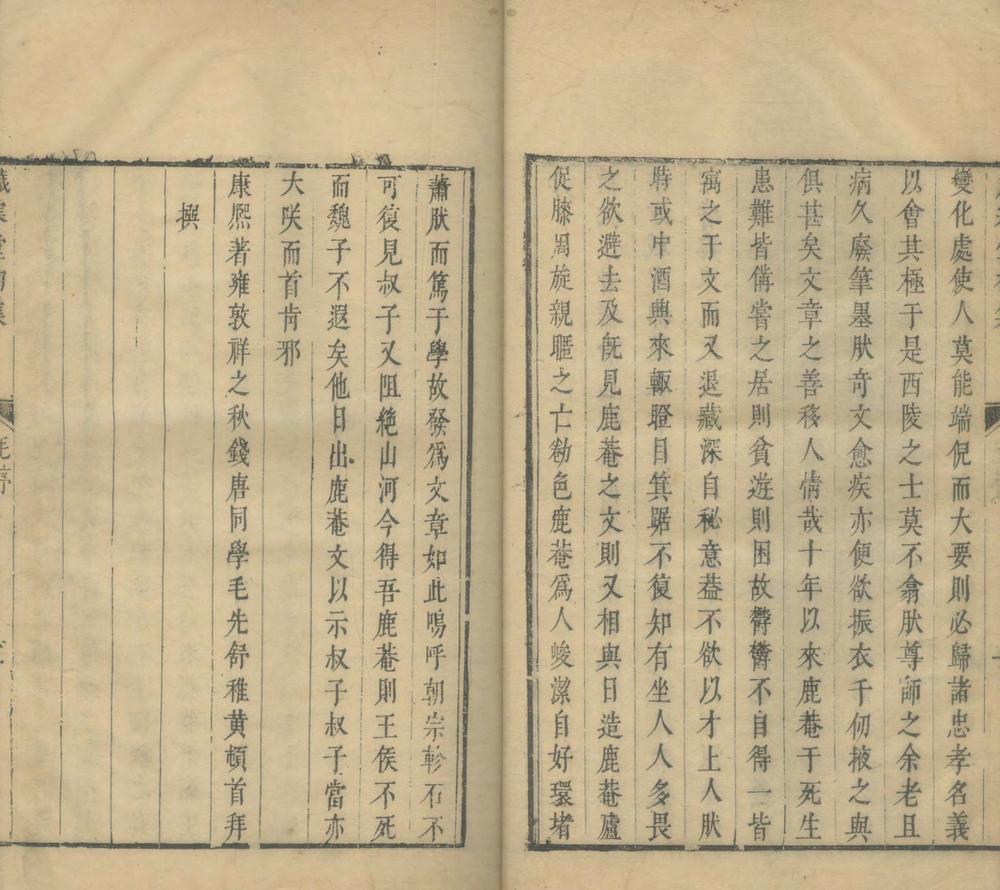 變化處使人莫能端倪而大要則必歸諸忠孝名義
以會其極于是西陵之士莫不翕肰尊師之余老且
病久廢筆墨肰奇文愈疾亦便欲振衣千仞掖之與
俱甚矣文章之善移人情哉十年以來鹿菴于死生
患難皆備嘗之居則貧遊則困故鬱鬱不自得一皆
寓之于文而又退藏深自秘意葢不欲以才上人肰
時或中酒興來輙瞪目箕踞不復知有坐人人多畏
之欲避去及旣見鹿菴之文則又相與日造鹿菴廬
促膝周旋親暱之亡勌色鹿菴爲人峻潔自好環堵
蕭肰而篤于學故發爲文章如此嗚呼朝宗軫石不
可復見叔子又阻絶山河今得吾鹿菴則王侯不死
而魏子不遐矣他日出鹿菴文以示叔子叔子當亦
大咲而首肯邪
康熙著雍敦祥之秋錢唐同學毛先舒稚黄頓首拜
撰
毛序